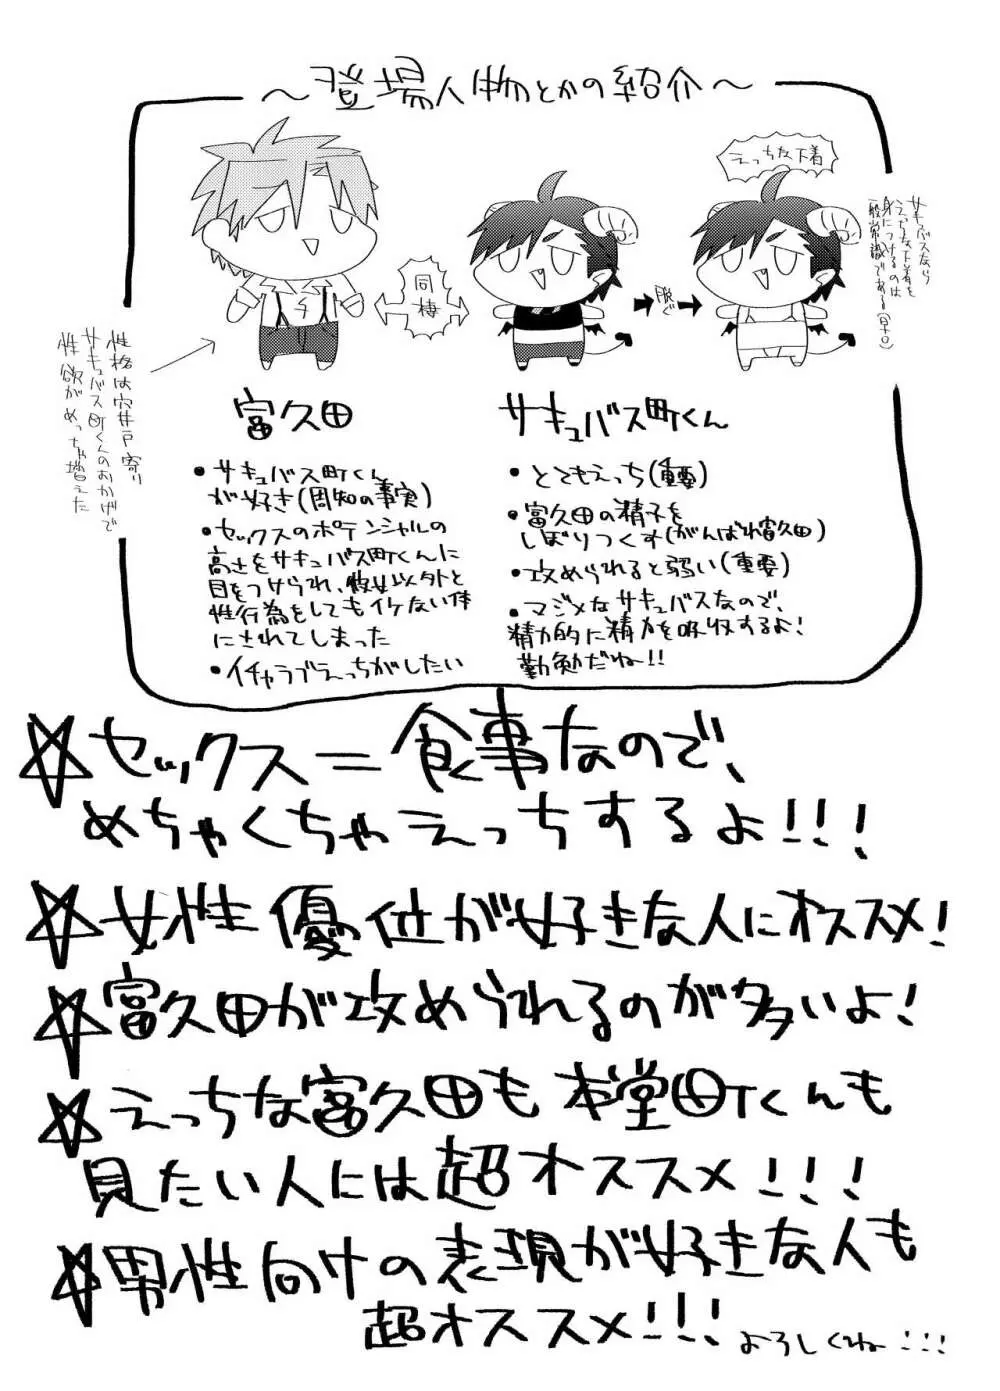 ～登場人物とかの紹介～
えっちな下着
サキュバスなら
えっちな下着を
身につけるのは
一般常識である(早口)
同棲
脱ぐ
性格は穴井戸寄り
サキュバス町くんのおかげで
性欲がめっちゃ増えた
富久田
・サキュバス町くん
が好き(周知の事実)
・セックスのポテンシャルの
高さをサキュバス町くんに
目をつけられ、彼女以外と
性行為をしてもイケない体
にされてしまった
・イチャラブえっちがしたい
サキュバス町くん
・とてもえっち(重要)
・富久田の精子を
しぼりつくす(がんばれ富久田)
・攻められると弱い(重要)
・マジメなサキュバスなので、
精力的に精力を吸収するよ!
勤勉だね!!
☆セックス＝食事なので、
めちゃくちゃえっちするよ!!!
☆女性優位が好きな人にオススメ!
☆富久田が攻められるのが多いよ!
☆えっちな富久田も本堂町くんも
見たい人には超オススメ!!!
☆男性向けの表現が好きな人も
超オススメ!!! よろしくねー!!!